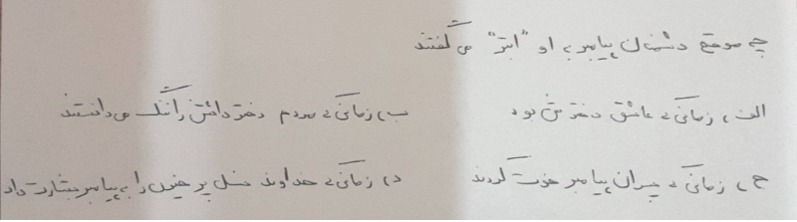 چه موقع دشمنان پیامبر به او "ابتر" می گفتند
الف) زمانی که عاشق دخترش بود ب) زمانی که مردم دختر داشتن را ننگ می دانستند
ج) زمانی که پسران پیامبر فوت کردند د) زمانی که خداوند نسل پر خیر را به پیامبر بشارت داد